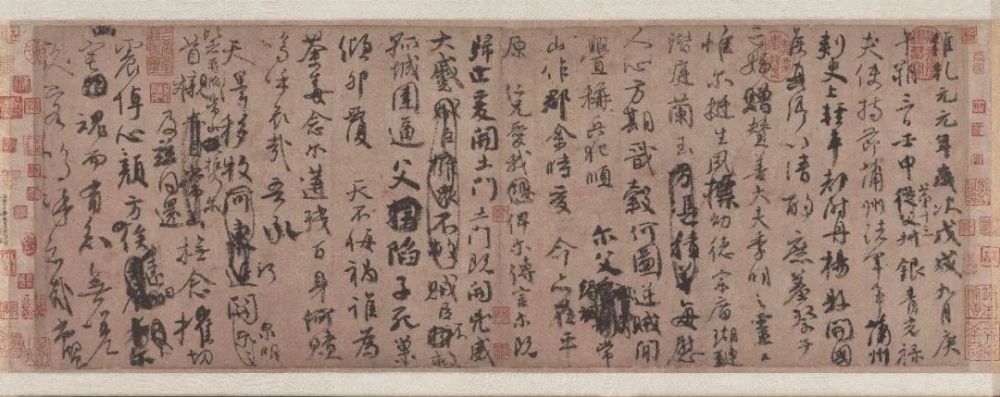 維乾元元年歲次戊戌九月庚
午朔三日壬申第十三叔銀青光祿
夫使持節蒲州諸軍事蒲州
刺史上輕車都尉丹楊縣開國
侯真卿以清酌庶羞祭于
亡姪贈贊善大夫季明之靈曰
惟爾挺生夙標幼德宗廟瑚璉
階庭蘭玉方憑積善每慰
人心方期戩穀何圖逆賊閒
釁稱兵犯順爾父竭誠常
山作郡余時受命亦在平
原仁兄愛我俾爾傳言爾既
歸止爰開土門土門既開兇威
大蹙賊臣擁眾不救賊臣不救
孤城圍逼父陷子死巢
傾卵覆天不悔禍誰為
荼毒念爾遘殘百身何贖
嗚呼哀哉吾承
天澤移牧河東近河關泉明
比者再陷常山攜爾
首櫬及茲同還撫念摧切
震悼心顏方俟遠日
宅魂而有知無嗟
久客嗚呼哀哉尚饗